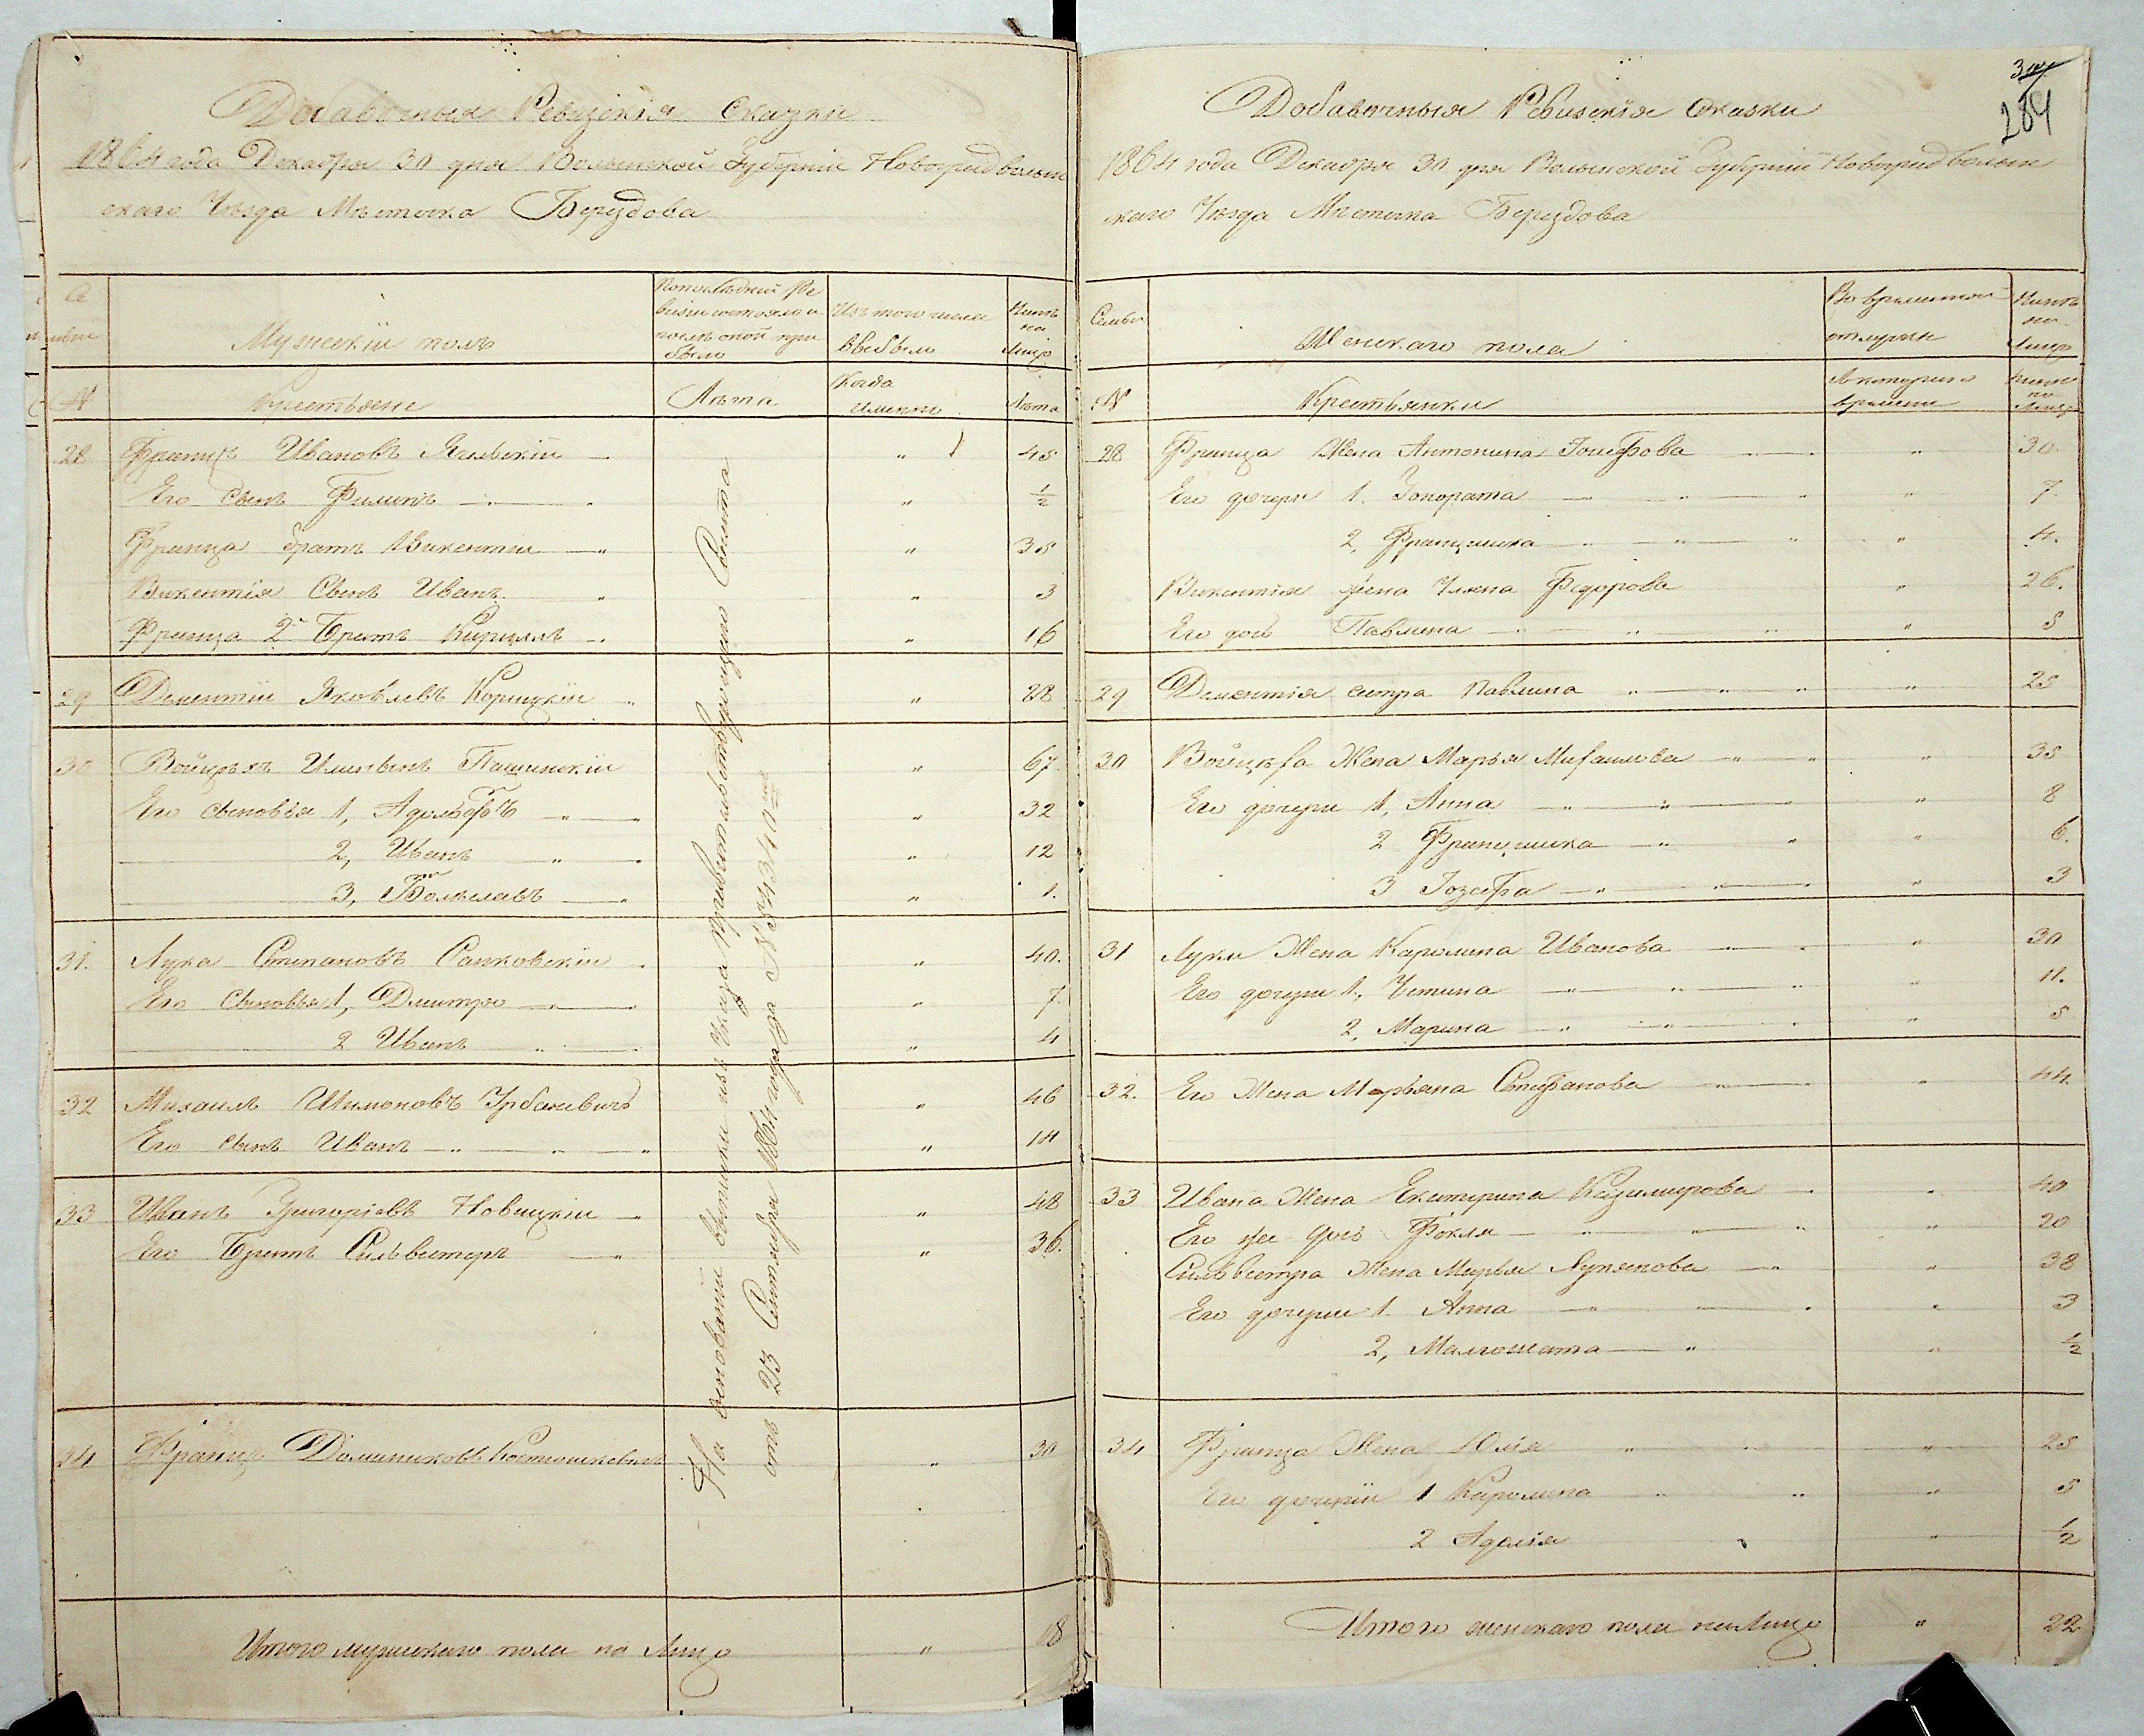 Добавочныя Ревизскія Сказки
1864 года Декабря 30 дня Волынской Губерніи Новоградволын
скаго Уѣзда Мѣстечка Берездова
Мужескій полъ
Изъ того числа выбыло
Нынѣ на лицо
№
Крестьяне
Лѣта
Когда именно
Лѣта
28 Францъ Ивановъ 45
Его сынъ Филипъ " 1/2
Франца братъ Викентій " 35
Викентія Сынъ Иванъ " 3
Франца 2й Братъ Кириллъ " 16
29 Дементій Яковлевъ Корицкій " 28
30 Войцѣхъ Пашинскій " 67
Его сыновья 1, Адольфъ " 32
2, Иванъ " 12
3, Болеславъ " 1.
31. Лука Степановъ Санковскій " 40.
Его Сыновья 1, Дмитро " 7
2 Иванъ " 4
32 Михаилъ Шимоновъ Урбановичъ " 46
Его сынъ Иванъ " 14
33 Иванъ Григоріевъ Новицкій " 48
Его Братъ Сильвестеръ " 36.
34 Францъ Доминиковъ " 30
Итого мужескаго пола на Лицо " 18
На основаніи выписки изъ Указа Правительствующаго Сената
отъ 23 Сентября 1864 года за №
284
Добавочныя Ревизскія сказки
1864 года Декабря 30 дня Волынской Губерніи Новоградволын
скаго Уѣзда Мѣстечка Берездова
Семьи
Женскаго пола
Во временной отлучкѣ
Нынѣ на Лицо
№
Крестьянки
28 Франца Жена Антонина Іосифова " 30
Его дочери 1. Гонората " 7
2, Францишка " 4.
Викентія жена Уляна Федорова " 26.
Его дочь Павлина " 5
29 Дементія сестра Павлина " 25
30 Войцѣха Жена Марья Михаилова " 35
Его дочери 1, Анна " 8
2 Францишка " 6.
3 Іозефа " 3
31 Луки Жена Каролина Иванова " 30
Его дочери 1, Устина " 11.
2, Марина " 5
32. Его Жена Марьяна Стефанова " 44
33 Ивана Жена Екатерина Казимирова " 40
Его же дочь Фекля " 20
Сильвестра Жена Марья Лукянова " 38
Его дочери 1. Анна " 3
2, Малгожата " 1/2
34 Франца Жена Юлія " 25
Его дочери 1 Каролина " 5
2 Аделія " 1/2
Итого женскаго пола на Лицо " 22